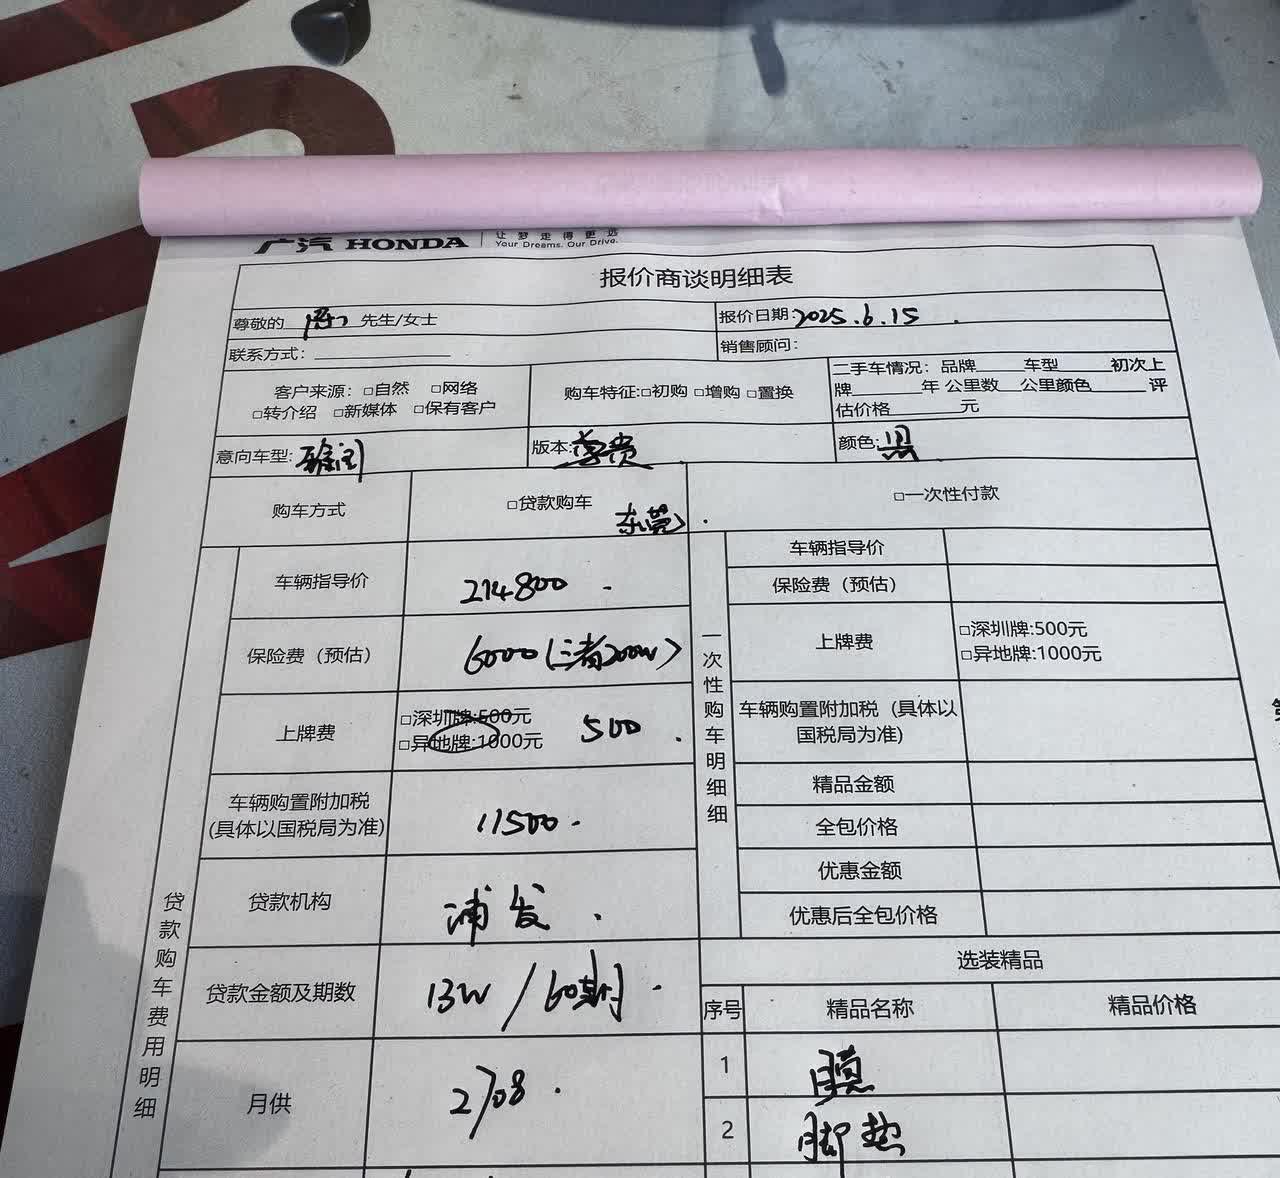 广汽 HONDA 让梦走得更远
Your Dreams. Our Drive.
报价商谈明细表
尊敬的 先生/女士
报价日期:2025.6.15
联系方式:
销售顾问:
客户来源: □自然 □网络
□转介绍 □新媒体 □保有客户
购车特征:□初购 □增购 □置换
二手车情况: 品牌 车型 初次上
牌 年 公里数 公里颜色 评
估价格 元
意向车型:
版本:尊贵
颜色:黑
购车方式
□贷款购车
东莞
□一次性付款
贷款购车费用明细
车辆指导价
214800
保险费 (预估)
6000(三者200w)
上牌费
□深圳牌:500元
□异地牌:1000元
500
车辆购置附加税
(具体以国税局为准)
11500
贷款机构
浦发
贷款金额及期数
13W/60期
月供
2708
一次性购车明细细
车辆指导价
保险费 (预估)
上牌费
□深圳牌:500元
□异地牌:1000元
车辆购置附加税 (具体以
国税局为准)
精品金额
全包价格
优惠金额
优惠后全包价格
选装精品
序号
精品名称
精品价格
1
膜
2
脚垫